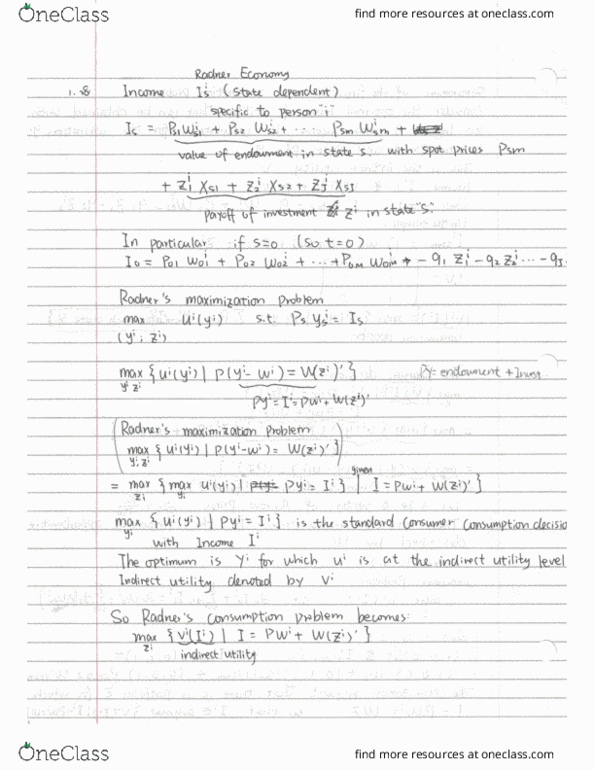 OneClass
find more resources at oneclass.com
Radner Economy
1.8 Income I_s^i (state dependent)
specific to person "i"
I_s = P_s1 W_s1^i + P_s2 W_s2^i + ... P_sm W_sm^i +
value of endowment in state s with spot prices P_sm
+ Z_1^i X_s1 + Z_2^i X_s2 + Z_J^i X_sJ
payoff of investment z^i in state "s".
In particular if s=0 (so t=0)
I_0 = P_01 W_01^i + P_02 W_02^i + ... + P_0M W_0M^i + - q_1 Z_1^i - q_2 Z_2^i ... - q_J
Radner's maximization problem
max u^i(y^i) s.t P_s y_s^i = I_s
(y^i, z^i)
max { u^i(y^i) | P(y^i - w^i) = W(z^i)' } Py = endowment + Invest
y^i z^i
Py^i = I^i = Pw^i + W(z^i)'
Radner's maximization problem
max { u^i(y^i) | P(y^i - w^i) = W(z^i)' }
y^i, z^i
given
= max { max u^i(y^i) | Py^i = I^i } | I = Pw^i + W(z^i)' }
z^i y^i
max { u^i(y^i) | Py^i = I^i } is the standard consumer consumption decisio
y^i with Income I^i
The optimum is y^i for which u^i is at the indirect utility level
Indirect utility denoted by v^i
So Radner's consumption problem becomes:
max { v^i(I^i) | I = PW^i + W(z^i)' }
z^i indirect utility
OneClass
find more resources at oneclass.com